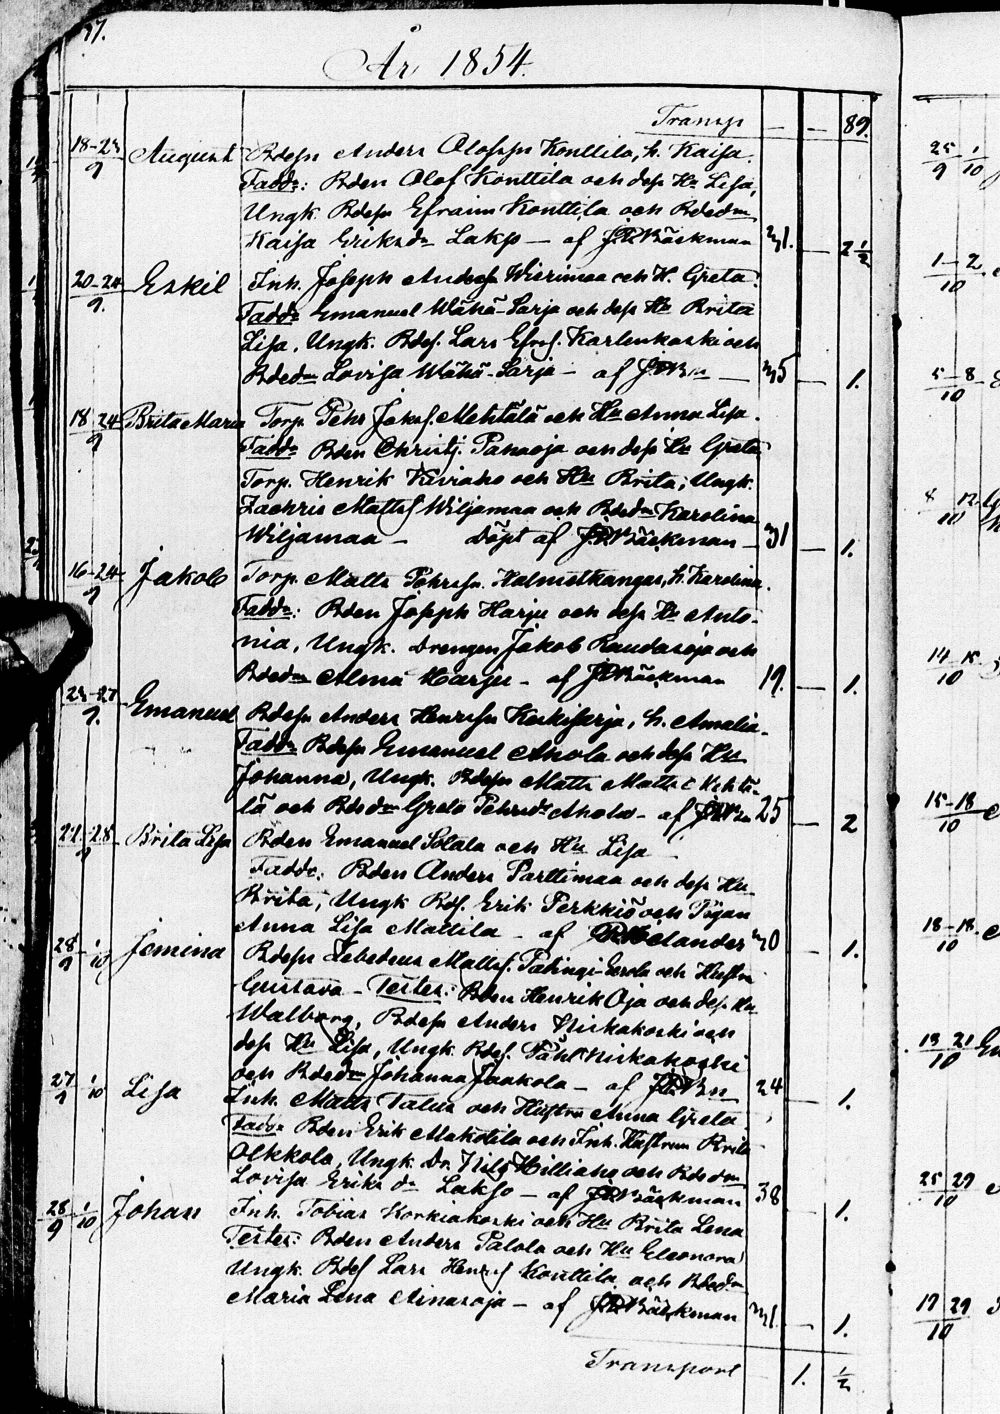 57.
År 1854.
Transp — — 89.
18-23/9 August Bdesn Anders Olofssn Konttila, h. Kaisa.
Faddr: Bden Olof Konttila och dess Hu Lisa,
Ungk. Bdesn Efraim Konttila och Bdedr
Kaisa Eriksdr Lakso — af J.R. Bäckman 31. — 2 1/2
20-24/9. Eskil Inh. Joseph Anderss Wierimaa och H. Greta.
Faddr Emanuel Wähä-Sarja och dess Hu Brita
Lisa, Ungk. Bdes. Lars Efrs. Karlenkoski och
Bdedr Lovisa Wähä-Sarja — af — 35 — 1.
18 24/9 Brita Maria Torp. Pehr Jakos. Mehtälä och Hu Anna Lisa.
Faddr Bden Christj. Panaoja och dess Hu Greta,
Torp. Henrik Kiviaho och Hu Brita, Ungk.
Zachris Mattss Wiljamaa och Bdedr Karolina
Wiljamaa — döpt af J.R. Bäckman — 31 — 1.
16-24/9 Jakob Torp. Matts Pehrssn Halmetkangas, h. Karolina.
Faddr: Bden Joseph Harju och dess Hu Anto-
nia, Ungk. Drengen Jakob Raudasoja och
Bdedr Alma Harju — af J.R. Bäckman 19. — 1.
23-27/9. Emanuel Bdesn Anders Henrssn Keskisarja, h. Amalia.
Faddr Bdesn Emanuel Ahola och dess Hu
Johanna, Ungk. Bdesn Matts Matts Mehtä-
lä och Bdedr Greta Pehrsdr Ahola — af 25 — 2
-28/9 Brita Lisa Bden Emanuel Sotala och Hu Lisa
Faddr. Bden Anders Parttimaa och dess Hu
Brita, Ungk Bds. Erik Perkkiö och Pigan
Anna Lisa Mattila — af Helander 30 — 1.
28/9 1/10 Jemina Bdesn Zebedeus Mattss. och Hustru
Gustava — Testes: Bden Henrik Oja och dess Hu
Walborg, Bdesn Anders Niskakoski och
dess Hu Lisa, Ungk. Bdes. Påhl Niskakoski
och Bdedr Johanna Jaakola — af 24 — 1.
27/9 1/10 Lisa Inh. Matts Talus och Hustru Anna Greta.
Faddr Bden Erik Makotila och Inh. Hustrun Brita
Olkkola, Ungk. Dr. Nils Hilliaho och Bdedr
Lovisa Eriks dr Lakso — af J.R. Bäckman 38 — 1.
28/9 1/10 Johan Inh. Tobias Korkiakoski och Hu Brita Lena
Testes: Bden Anders Palola och Hu Eleonora
Ungk. Bdes Lars Henrss Konttila och Bdedr
Maria Lena Ainasoja — af J.R. Bäckman 31. — 1.
Transport 1. 1/2
25/9 1/10
1-2/10
5-8/10
8 12/10
14-15/10
15-18/10
18-18/10
13 21/10
25 29/10
19 29/10